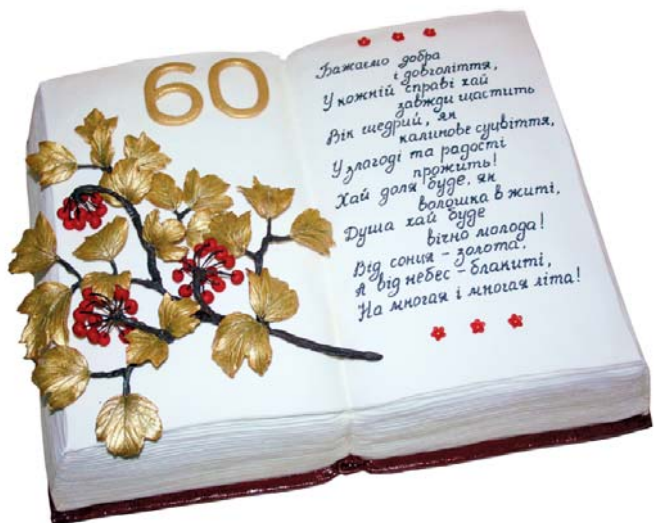 60
Бажаємо добра
і довголіття,
У кожній справі хай
завжди щастить
Вік щедрий, як
калинове суцвіття,
У злагоді та радості
прожить!
Хай доля буде, як
волошка в житі,
Душа хай буде
вічно молода!
Від сонця - золота,
А від небес - блакиті,
На многая і многая літа!